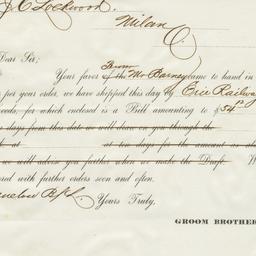 J C Lockwood.
Milan
O.
Dear Sir:
from
Your favor of the Mr Barney came to hand in
per your order, we have shipped this day by Erie Railway
goods, for which enclosed is a Bill amounting to $54
days from this date we will draw on you through the
at ten days for the amount
we will advise you further when we make the Draft. W
ored with further orders soon and often.
Inclose B/L
Yours Truly,
GROOM BROTHER